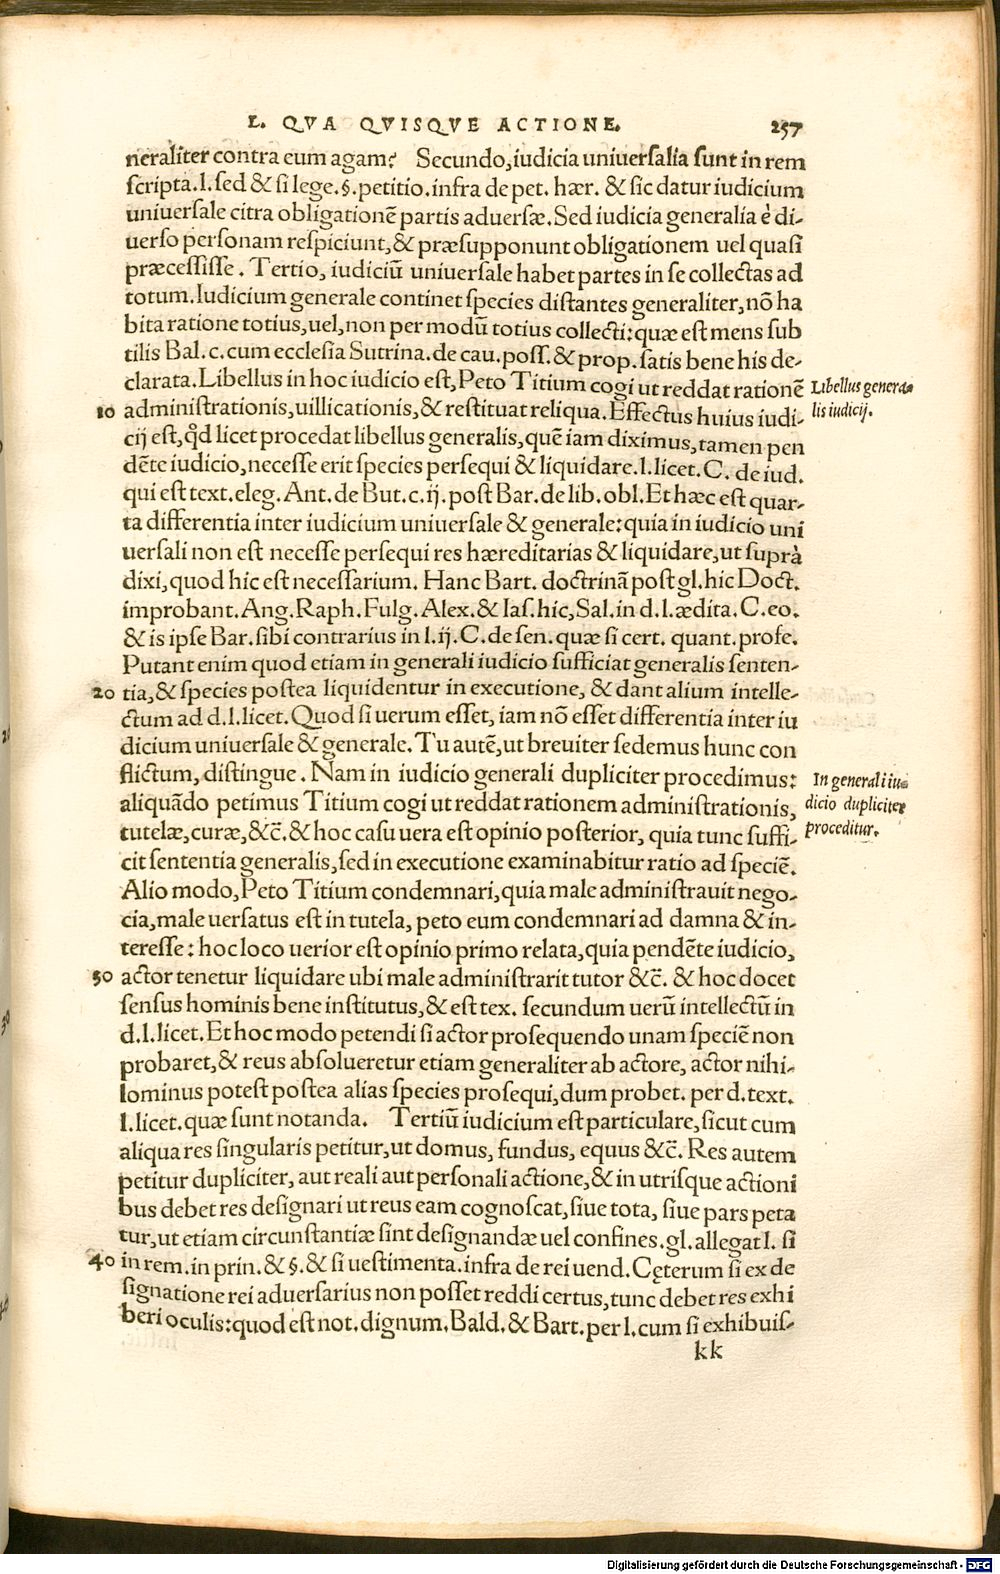 L. QVA QVISQVE ACTIONE. 257
neraliter contra eum agam? Secundo, iudicia uniuersalia sunt in rem
scripta. l. sed & si lege. §. petitio. infra de pet. hær. & sic datur iudicium
uniuersale citra obligationẽ partis aduersæ. Sed iudicia generalia è di-
uerso personam respiciunt, & præsupponunt obligationem uel quasi
præcessisse. Tertio, iudiciũ uniuersale habet partes in se collectas ad
totum. Iudicium generale continet species distantes generaliter, nõ ha
bita ratione totius, uel, non per modũ totius collecti: quæ est mens sub
tilis Bal. c. cum ecclesia Sutrina. de cau. poss. & prop. satis bene his de-
clarata. Libellus in hoc iudicio est, Peto Titium cogi ut reddat rationẽ
Libellus genera-
lis iudicij.
10 administrationis, uillicationis, & restituat reliqua. Effectus huius iudi-
cij est, qd̃ licet procedat libellus generalis, quẽ iam diximus, tamen pen
dẽte iudicio, necesse erit species persequi & liquidare. l. licet. C. de iud.
qui est text. eleg. Ant. de But. c. ij. post Bar. de lib. obl. Et hæc est quar-
ta differentia inter iudicium uniuersale & generale: quia in iudicio uni
uersali non est necesse persequi res hæreditarias & liquidare, ut suprà
dixi, quod hic est necessarium. Hanc Bart. doctrinã post gl. hic Doct.
improbant. Ang. Raph. Fulg. Alex. & Ias. hic, Sal. in d. l. ædita. C. eo.
& is ipse Bar. sibi contrarius in l. ij. C. de sen. quæ si cert. quant. profe.
Putant enim quod etiam in generali iudicio sufficiat generalis senten-
20 tia, & species postea liquidentur in executione, & dant alium intelle-
ctum ad d. l. licet. Quod si uerum esset, iam nõ esset differentia inter iu
dicium uniuersale & generale. Tu autẽ, ut breuiter sedemus hunc con
flictum, distingue. Nam in iudicio generali dupliciter procedimus:
In generali iu-
dicio dupliciter
proceditur.
aliquãdo petimus Titium cogi ut reddat rationem administrationis,
tutelæ, curæ, &c̃. & hoc casu uera est opinio posterior, quia tunc suffi-
cit sententia generalis, sed in executione examinabitur ratio ad speciẽ.
Alio modo, Peto Titium condemnari, quia male administrauit nego-
cia, male uersatus est in tutela, peto eum condemnari ad damna & in-
teresse: hoc loco uerior est opinio primo relata, quia pendẽte iudicio,
30 actor tenetur liquidare ubi male administrarit tutor &c̃. & hoc docet
sensus hominis bene institutus, & est tex. secundum uerũ intellectũ in
d. l. licet. Et hoc modo petendi si actor prosequendo unam speciẽ non
probaret, & reus absolueretur etiam generaliter ab actore, actor nihi-
lominus potest postea alias species prosequi, dum probet. per d. text.
l. licet. quæ sunt notanda. Tertiũ iudicium est particulare, sicut cum
aliqua res singularis petitur, ut domus, fundus, equus &c̃. Res autem
petitur dupliciter, aut reali aut personali actione, & in utrisque actioni
bus debet res designari ut reus eam cognoscat, siue tota, siue pars peta
tur, ut etiam circunstantiæ sint designandæ uel confines. gl. allegat l. si
40 in rem. in prin. & §. & si uestimenta. infra de rei uend. Cęterum si ex de
signatione rei aduersarius non posset reddi certus, tunc debet res exhi
beri oculis: quod est not. dignum. Bald. & Bart. per l. cum si exhibuis-
kk
Digitalisierung gefördert durch die Deutsche Forschungsgemeinschaft - DFG